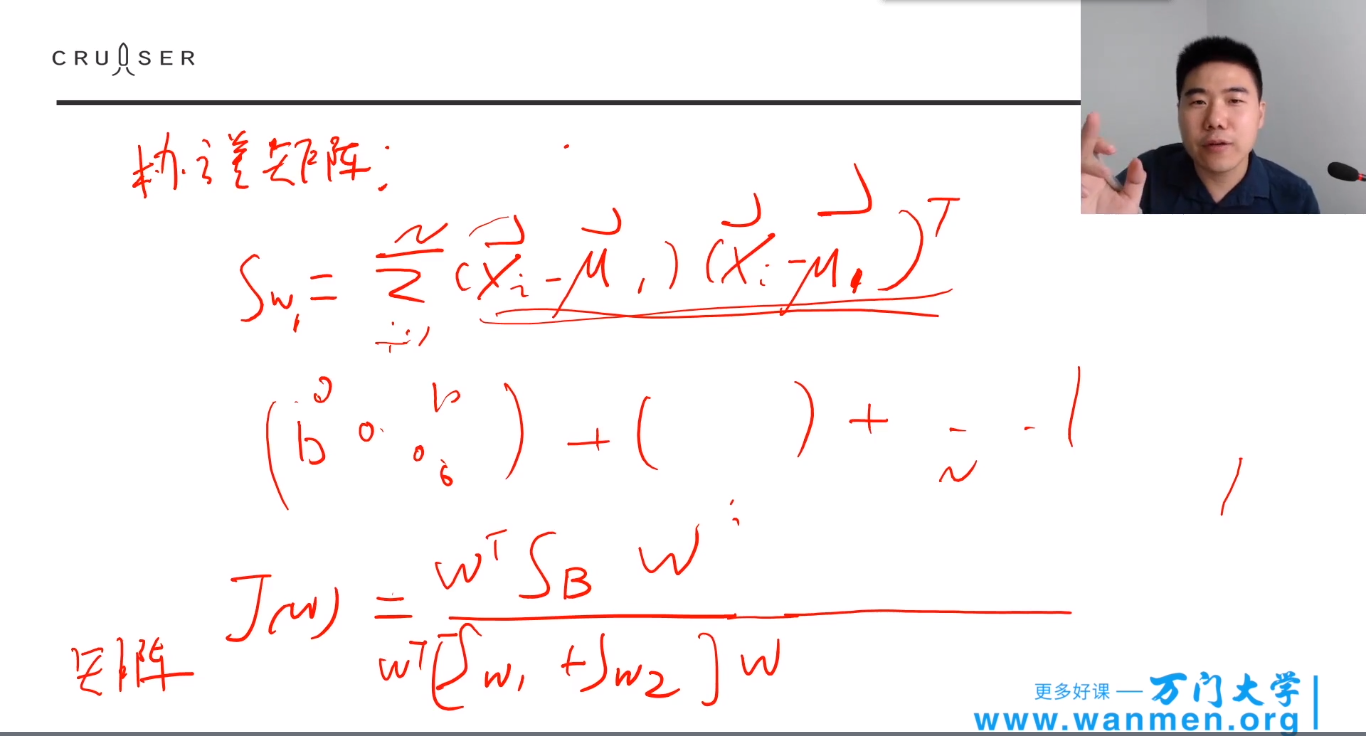 CRUISER
协方差矩阵:
S_{w_1} = \sum_{i=1}^{N} (\vec{X}_i - \vec{\mu}_1)(\vec{X}_i - \vec{\mu}_1)^T
( ) + ( ) +
J(w) = \frac{w^T S_B w}{w^T [S_{w_1} + S_{w_2}] w}
矩阵
更多好课 — 万门大学
www.wanmen.org